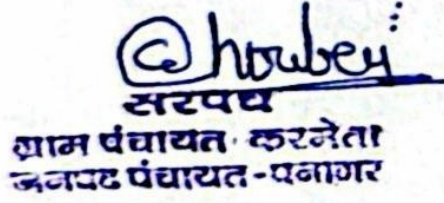 Choubey
सरपंच
ग्राम पंचायत करमेता
जनपद पंचायत-पनागर